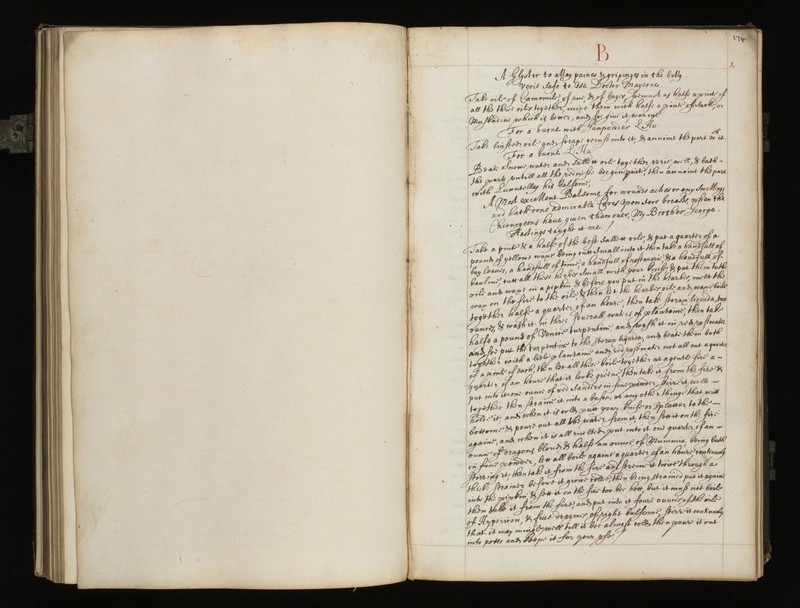 174
B
A Glyster to allay paines & gripings in the belly
verie safe to use Doctor Mayerne
Take oile of Camomile, of rue, & of bayes, somuch as halfe a pinte, of
all the three oiles together, mixe them with halfe a pinte of sack, or
Muskadine, which is better, and soe give it warme
For a burne with Gunpowder L. Ru
Take linseede oile and scrape verust into it, & annoint the part with it.
For a burne L. Ru
Beate Snow water and Sallett oile together verie well, & bath
the parte, untill all the rednesse bee gone out, then annoint the part
with Lucatellas his balsome,
A Most excellent Balsome for wounds aches or any swellings
and hath done admirable Cures upon sore breasts, when the
Chirurgeons have given them over, My Brother George
Hastings taught it me
Take a pinte & a halfe of the best Sallett oile, & put a quarter of a
pound of yellow waxe being cutt small into it then take a handfull of
bay leaves, a handfull of time, a handfull of rosemarie & a handfull of
baulme, cutt all these herbes small with your knife & put them to the
oile and waxe in a pipkin, & before you put in the hearbes, melt the
wax on the fire to the oile & then let the hearbes oile, and waxe boile
together halfe a quarter of an houre, then take storax liquida, two
ounces, & wash it in three severall waters of plantaine, then take
halfe a pound of Venice turpentine, and wash it in red rosewater
and soe put the turpentine to the storax liquida, and beate them both
together with a little plantaine and red rosewater not all out a quarter
of a pinte of each, then lett all these boile together at a gentle fire a
quarter of an houre that it looke greene, then take it from the fire &
put into it one ounce of red Sanders in fine powder, stirre it well
together then straine it into a bason, or any other thinge that will
hold it, and when it is cold, putt your knife or splatter to the
bottome & poure out all the water from it, then sett it on the fire
againe, and when it is all melted, put into it one quarter of an
ounce of dragons bloud & halfe an ounce of Mummia, being both
in fine powder, lett all boile againe a quarter of an houre, continually
stirring it then take it from the fire and straine it twice through a
thick strainer before it growe cold, then being strained put it againe
into the pipkin, & sett it on the fire too bee hott, but it must not boile
then take it from the fire, and put into it foure ounces of the oile
of Hypericon, & five dragmes, of right balsome, stirre it continualy
that it may mingle well till it bee almost cold, then poure it out
into potts and keepe it for your use